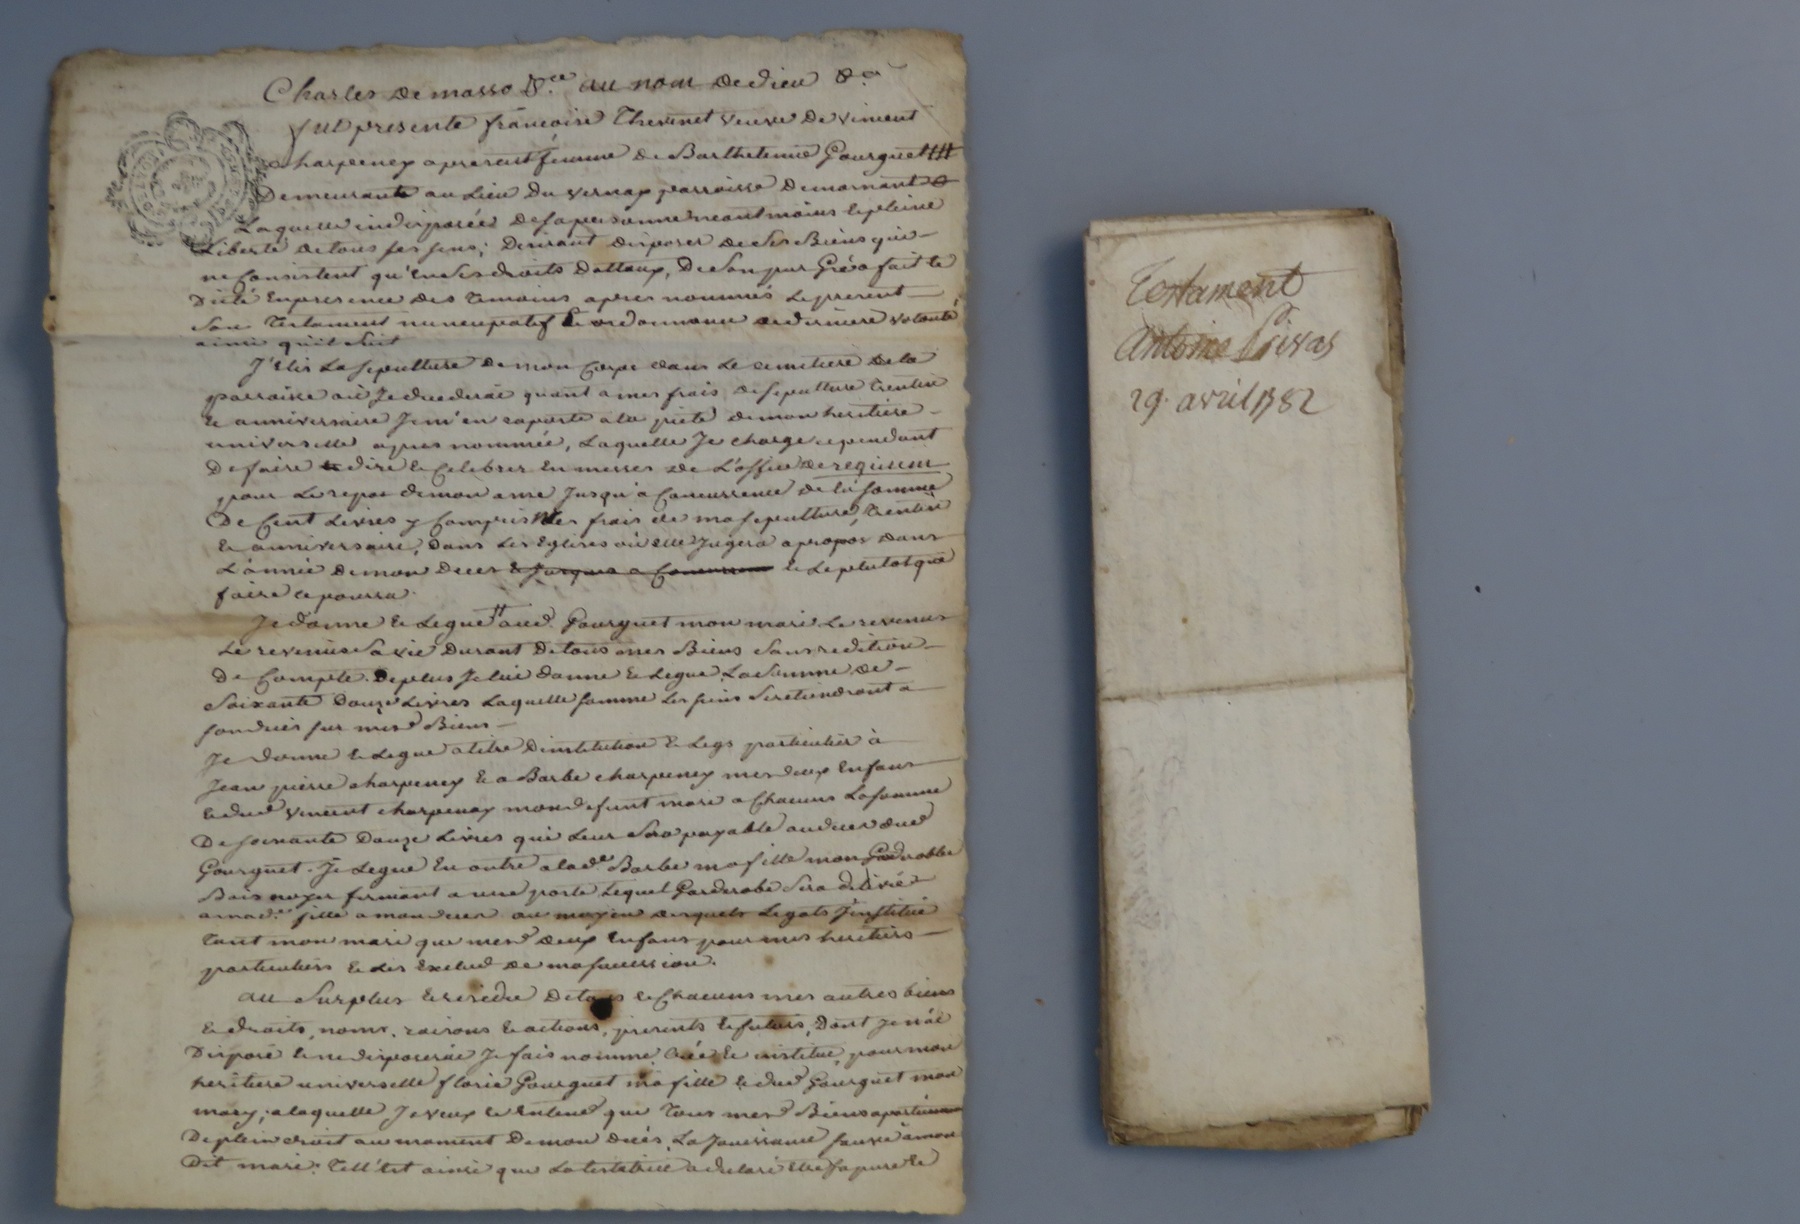 Charles De masso &.ce au nom de dieu &.a
fut presente françoise Thevenet veuve De vincent
charpeney apresent femme de Barthelemie Gourguet
Demeurante au Lieu Du vernay parroisse De mornant
Laquelle indisposée de sa personne neantmoins Le pleine
Liberté de tous ses sens; Desirant disposer de Ses Biens qui
ne Consistent qu'en Ses droits Dottaux, De Son pur Gré a fait Et
Dicté En presence des Temoins apres nommés Le present
Son Testament nuncupatif Et ordonnance de derniere volonté
ainsi qu'il Suit
J'Elis La sepulture De mon Corps dans Le cimetiere De la
parroisse où Je decederai quant a mes frais de sepulture trentin
Et anniversaire Je m'en raporte a la pieté de mon heritiere
universelle apres nommée, Laquelle Je charge cependant
De faire dire Et Celebrer En messes de L'office de requiem
pour Le repos de mon ame Jusqu'a Concurrence de la somme
De Cent Livres y Compris Les frais de ma sepulture, trentin
Et anniversaire, Dans Les Eglises où elle Jugera apropos dans
L'année De mon Deces Et Jusques a Concurrence Et Le plutot que
faire ce pourra.
Je donne Et Legue aud. Gourguet mon mari Le revenus
Le revenus Sa vie Durant De tous mes Biens Sans redition
De Compte. De plus Je lui donne Et Legue La Somme de
Soixante Douze Livres Laquelle somme Les siens Se retiendront a
sur mesd Biens
Je donne Et Legue a titre D'institution Et Legs particulier à
Jean pierre charpeney Et a Barbe charpeney mes deux Enfans
Et dud vincent charpenay mon defunt mari a Chacuns La somme
De soixante Douze Livres qui Leur Sera payable au deces dud
Gourguet. Je Legue En outre a lad.e Barbe ma fille mon Garderobbe
Bois noyer fermant a une porte Lequel Garderobe Sera delivré
a mad.e fille a mon deces au moyen desquels Legats J'institue
Tant mon mari que mesd deux Enfans pour mes heritiers
particuliers Et Les Exclud De ma succession.
au Surplus Et residu De tous Et Chacuns mes autres biens
Et droits, noms, raisons Et actions, presents Et futurs, Dont Je n'ai
Disposé Et ne disposerai Je fais nomme Crée Et institue pour mon
heritiere universelle florie Gourguet ma fille Et dud Gourguet mon
mary, a laquelle Je veux Et Entend que Tous mesd Biens apartienne
De plein droit au moment De mon decés La Jouissance sauve à mon
Dit mari. Tell'est ainsi que La testatrice a declaré Etre sa pure Et
Testament
d.
Antoine Privas
29. avril 1782